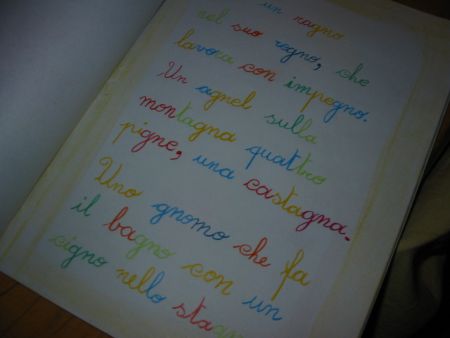 un ragno
nel suo regno, che
lavora con impegno.
Un agnel sulla
montagna quattro
pigne, una castagna.
Uno gnomo che fa
il bagno con un
cigno nello